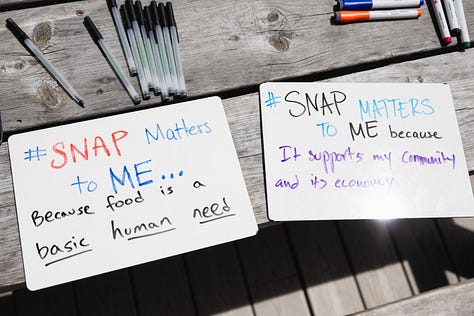 # SNAP Matters
to ME...
Because food is a
basic human need
# SNAP MATTERS
TO ME because
It supports my community
and its economy.